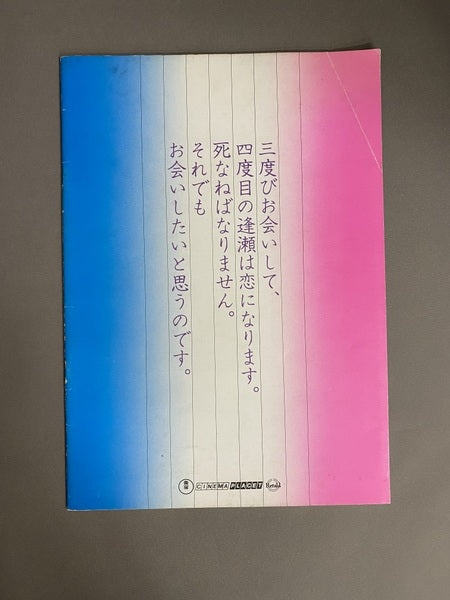 三度びお会いして、
四度目の逢瀬は恋になります。
死なねばなりません。
それでも
お会いしたいと思うのです。
東宝 CINEMA PLACET Herald